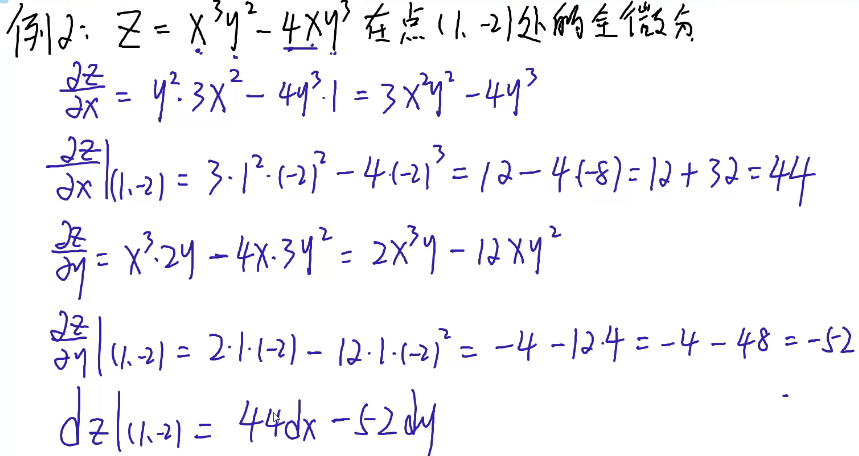 例2: Z = x³y² - 4xy³ 在点(1,-2)处的全微分
∂z/∂x = y²·3x² - 4y³·1 = 3x²y² - 4y³
∂z/∂x|(1,-2) = 3·1²·(-2)² - 4·(-2)³ = 12 - 4·(-8) = 12 + 32 = 44
∂z/∂y = x³·2y - 4x·3y² = 2x³y - 12xy²
∂z/∂y|(1,-2) = 2·1·(-2) - 12·1·(-2)² = -4 - 12·4 = -4 - 48 = -52
dz|(1,-2) = 44dx - 52dy